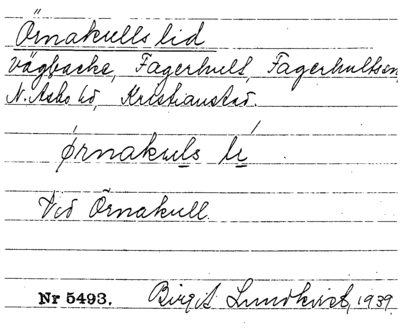 Örnakulls lid
vägbacke, Fagerhult, Fagerhults sn,
N. Åsbo hd, Kristianstad.
ørnakuls li
Vid Örnakull
Nr 5493. Birgit Lundkvist, 1939